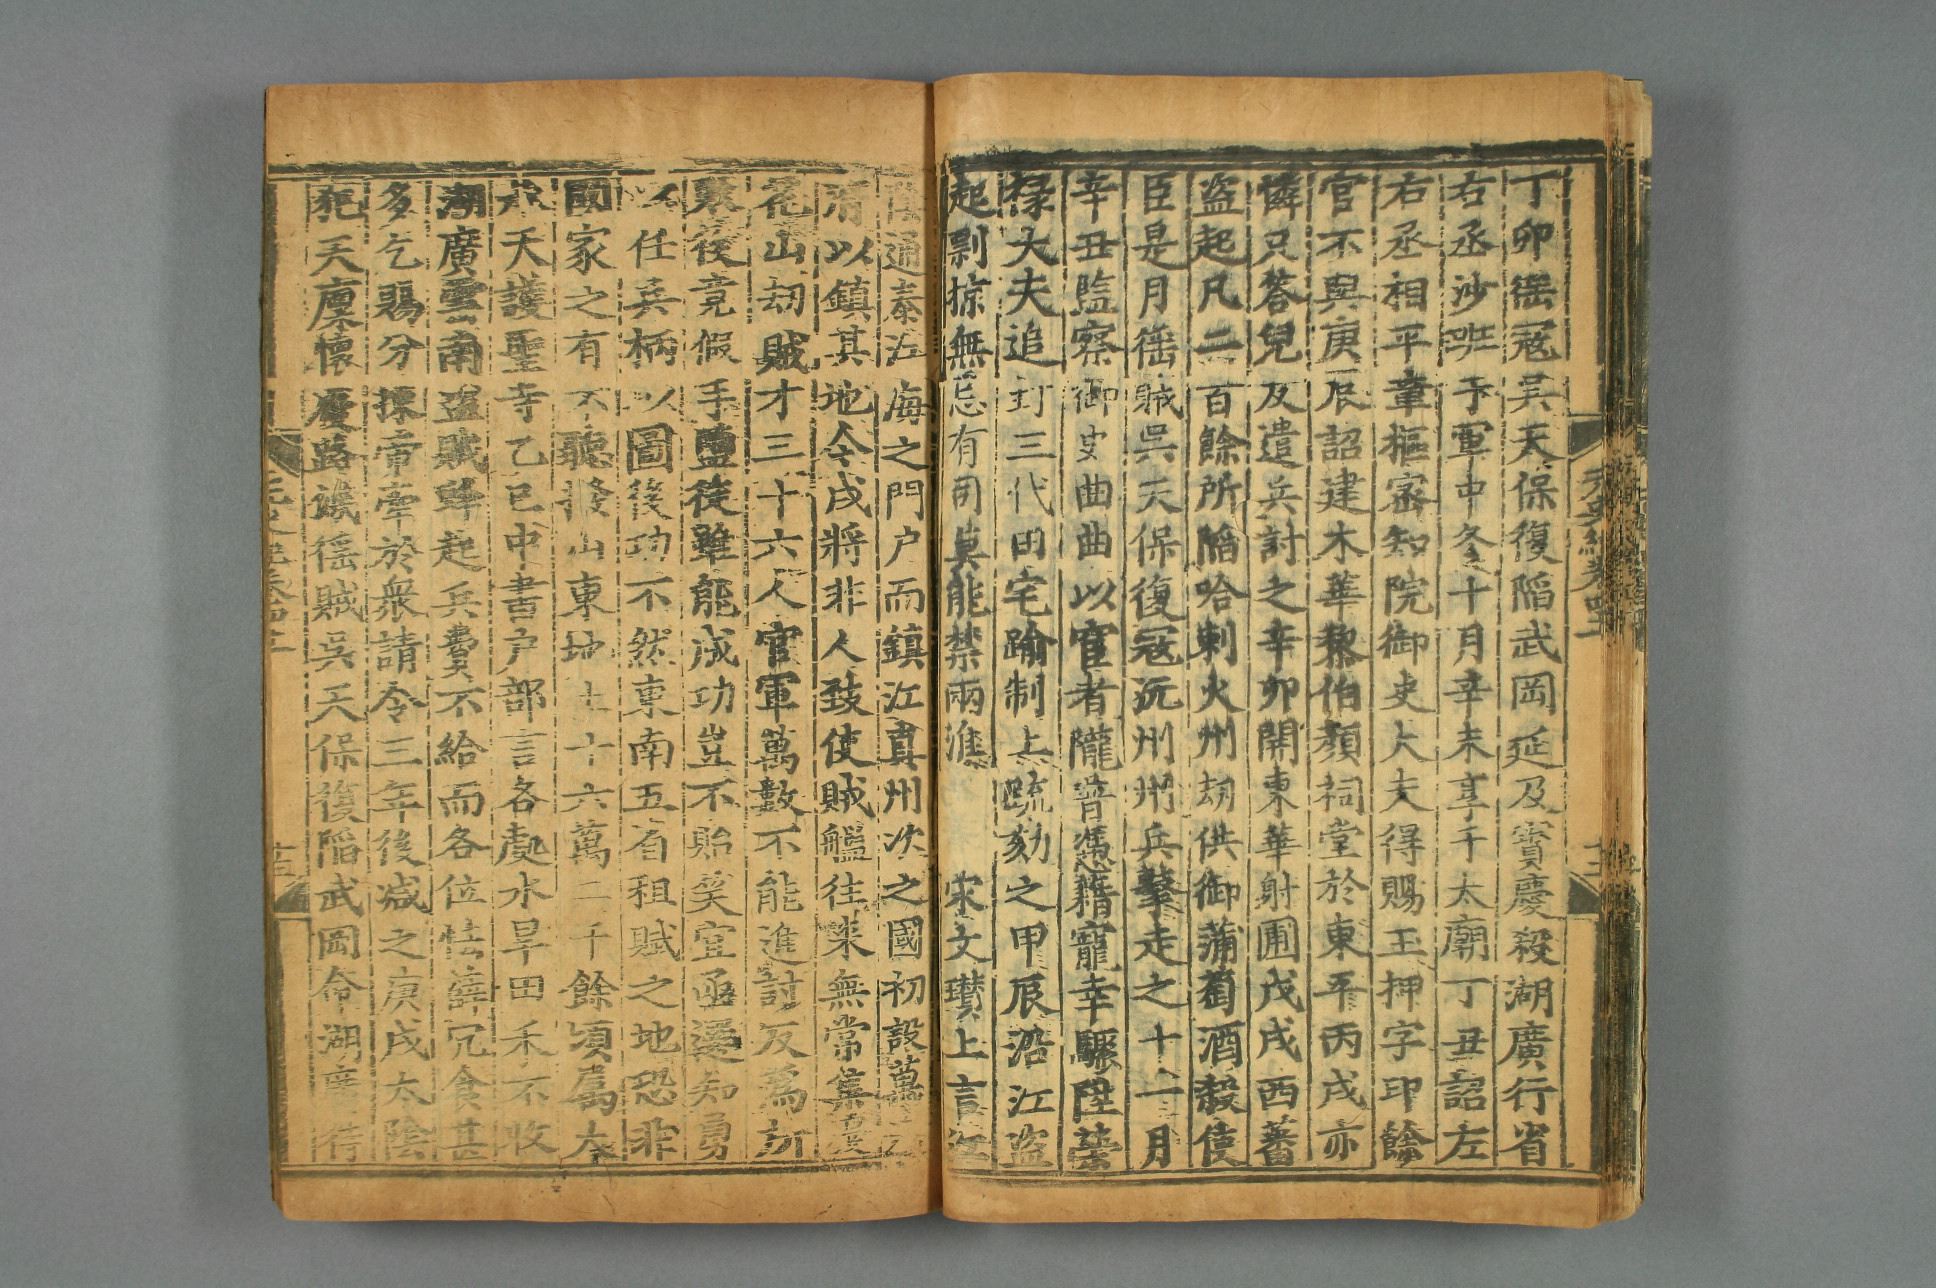 丁卯徭寇吳天保復陷武岡延及寶慶殺湖廣行省
右丞沙班于軍中冬十月辛未享于太廟丁丑詔左
右丞相平章樞密知院御史大夫得賜玉押字印餘
官不與庚辰詔建木華黎伯顏祠堂於東平丙戌亦
憐只荅兒反遣兵討之辛卯開東華射圃戊戌西蕃
盜起凡二百餘所陷哈剌火州劫供御蒲萄酒殺使
臣是月徭賊吳天保復寇沅州州兵擊走之十一月
辛丑監察御史曲曲以宦者隴普憑藉寵幸驟陞榮
祿大夫追封三代田宅踰制上疏劾之甲辰沿江盜
起剽掠無忌有司莫能禁兩淮 宋文瓚上言江
通泰江海之門戶而鎮江真州次之國初設萬
府以鎮其地今戍將非人致使賊艦往來無常集慶
花山劫賊才三十六人官軍萬數不能進討反為所
敗後竟假手鹽徒雖能成功豈不貽笑宜亟選知勇
以任兵柄以圖後功不然東南五省租賦之地恐非
國家之有不聽撥山東地土十六萬二千餘頃屬大
承天護聖寺乙巳中書戶部言各處水旱田禾不收
湖廣雲南盜賊蜂起兵費不給而各位怯薛冗食甚
多乞賜分揀帝牽於衆請令三年後減之庚戌太陰
犯天廩懷慶路饑徭賊吳天保復陷武岡命湖廣行
元史紀卷四十一
十三